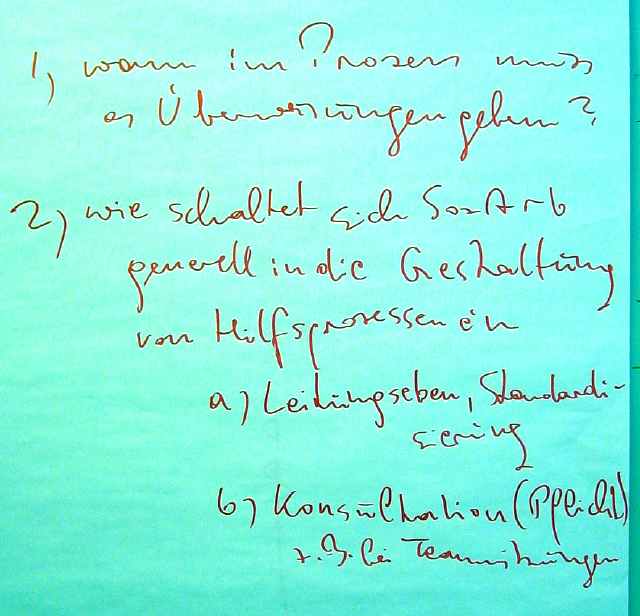 1) wann im Prozess muss
es Überweisungen geben?
2) wie schaltet sich SozArb
generell in die Gestaltung
von Hilfsprozessen ein
a) Leitungseben, Standardi-
sierung
b) Konsultation (Pflicht)
z.B. bei Teamsitzungen